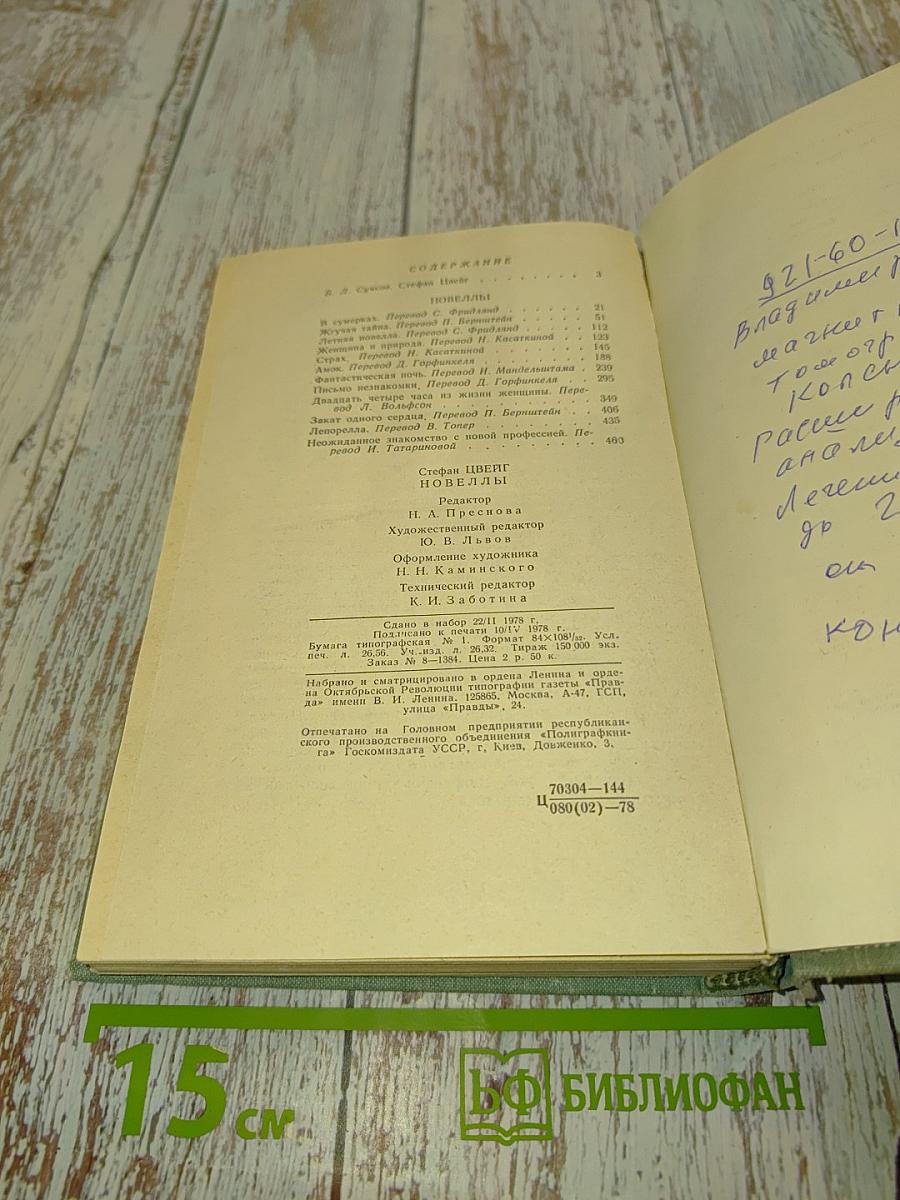 СОДЕРЖАНИЕ
Б. Л. Сучков. Стефан Цвейг . . . . . . . . 3
НОВЕЛЛЫ
В сумерках. Перевод С. Фридлянд . . . . . . 21
Жгучая тайна. Перевод П. Бернштейн . . . . . 51
Летняя новелла. Перевод С. Фридлянд . . . . . 112
Женщина и природа. Перевод Н. Касаткиной . . 123
Страх. Перевод Н. Касаткиной . . . . . . . 145
Амок. Перевод Д. Горфинкеля . . . . . . . 188
Фантастическая ночь. Перевод И. Мандельштама . 239
Письмо незнакомки. Перевод Д. Горфинкеля . . 295
Двадцать четыре часа из жизни женщины. Пере-
вод Л. Вольфсон . . . . . . . . . . . 349
Закат одного сердца. Перевод П. Бернштейн . . 406
Лепорелла. Перевод В. Топер . . . . . . . 435
Неожиданное знакомство с новой профессией. Пе-
ревод И. Татариновой . . . . . . . . . 460
Стефан ЦВЕЙГ
НОВЕЛЛЫ
Редактор
Н. А. Преснова
Художественный редактор
Ю. В. Львов
Оформление художника
Н. Н. Каминского
Технический редактор
К. И. Заботина
Сдано в набор 22/II 1978 г.
Подписано к печати 10/IV 1978 г.
Бумага типографская № 1. Формат 84×108¹/₃₂. Усл.
печ. л. 26,56. Уч.-изд. л. 26,32. Тираж 150 000 экз.
Заказ № 8—1384. Цена 2 р. 50 к.
Набрано и сматрицировано в ордена Ленина и орде-
на Октябрьской Революции типографии газеты «Прав-
да» имени В. И. Ленина. 125865, Москва, А-47, ГСП,
улица «Правды», 24.
Отпечатано на Головном предприятии республикан-
ского производственного объединения «Полиграфкни-
га» Госкомиздата УССР, г. Киев, Довженко, 3.
Ц 70304—144
080(02)—78
921-60-1
Владимир
магнит
Томогр
Расши
анали
Лечени
до 2
он
кон
15 см
БФ БИБЛИОФАН